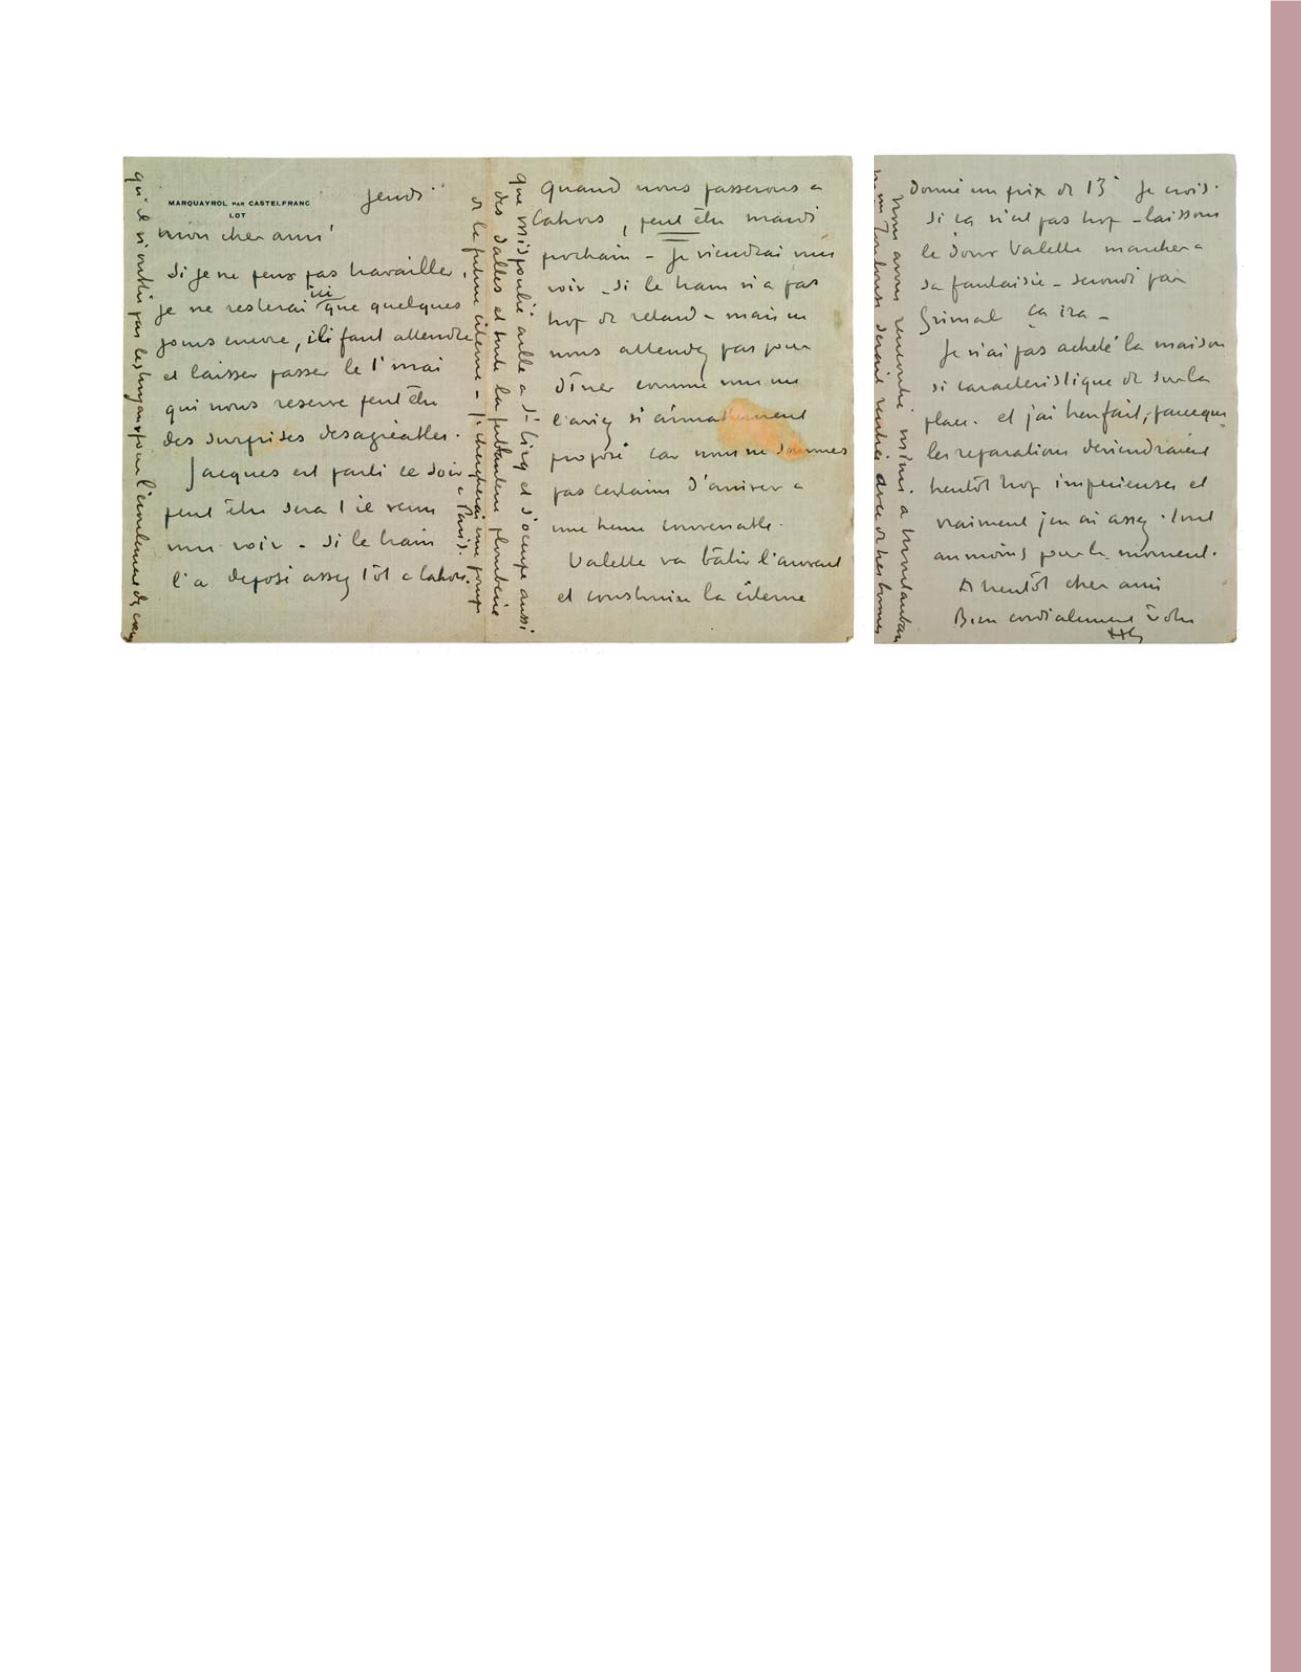 Jeudi
MARQUAYROL PAR CASTELFRANC
LOT
mon cher ami
Si je ne peux pas travailler
ici
je ne resterai que quelques
jours encore, il faut attendre
et laisser passer le 1r mai
qui nous reserve peut être
des surprises desagréables.
Jacques est parti ce soir
a Paris.
peut être sera t il venu
vous voir - si le train
l'a déposé assez tôt a Cahors.
Quand nous passerons a
Cahors, peut être mardi
prochain - je viendrai vous
voir - si le train n'a pas
trop de retard - mais ne
nous attendez pas pour
dîner comme vous
l'aviez si aimablement
proposé car nous ne sommes
pas certains d'arriver a
une heure convenable.
Valette va bâtir l'auvent
et construire la citerne
que vis
aille a St Cirq et s'occupe aussi
des dalles et toute la plomberie
de la future citerne - je chercherai une pompe
qu'il n'oublie pas les tuyaux pour l'écoulement
donné un prix de 13 je crois.
Si ça n'est pas trop - laissons
le doux Valette marcher a
sa fantaisie - secondé par
Grimal ça ira -
Je n'ai pas acheté la maison
si caracteristique de sur la
place. et j'ai bien fait, parceque
les reparations deviendraient
bientôt trop imperieuses et
vraiment j'en ai assez. tout
au moins pour le moment.
A bientôt cher ami
Bien cordialement votre
HM
nous avons rencontré a Montauban
Toulouse